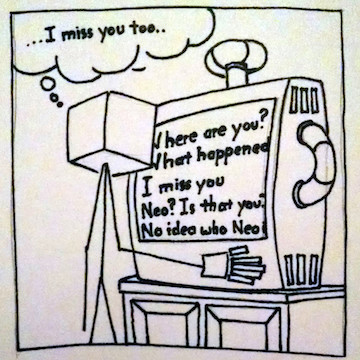 ...I miss you too..
Where are you?
What happened
I miss you
Neo? Is that you?
No idea who Neo i